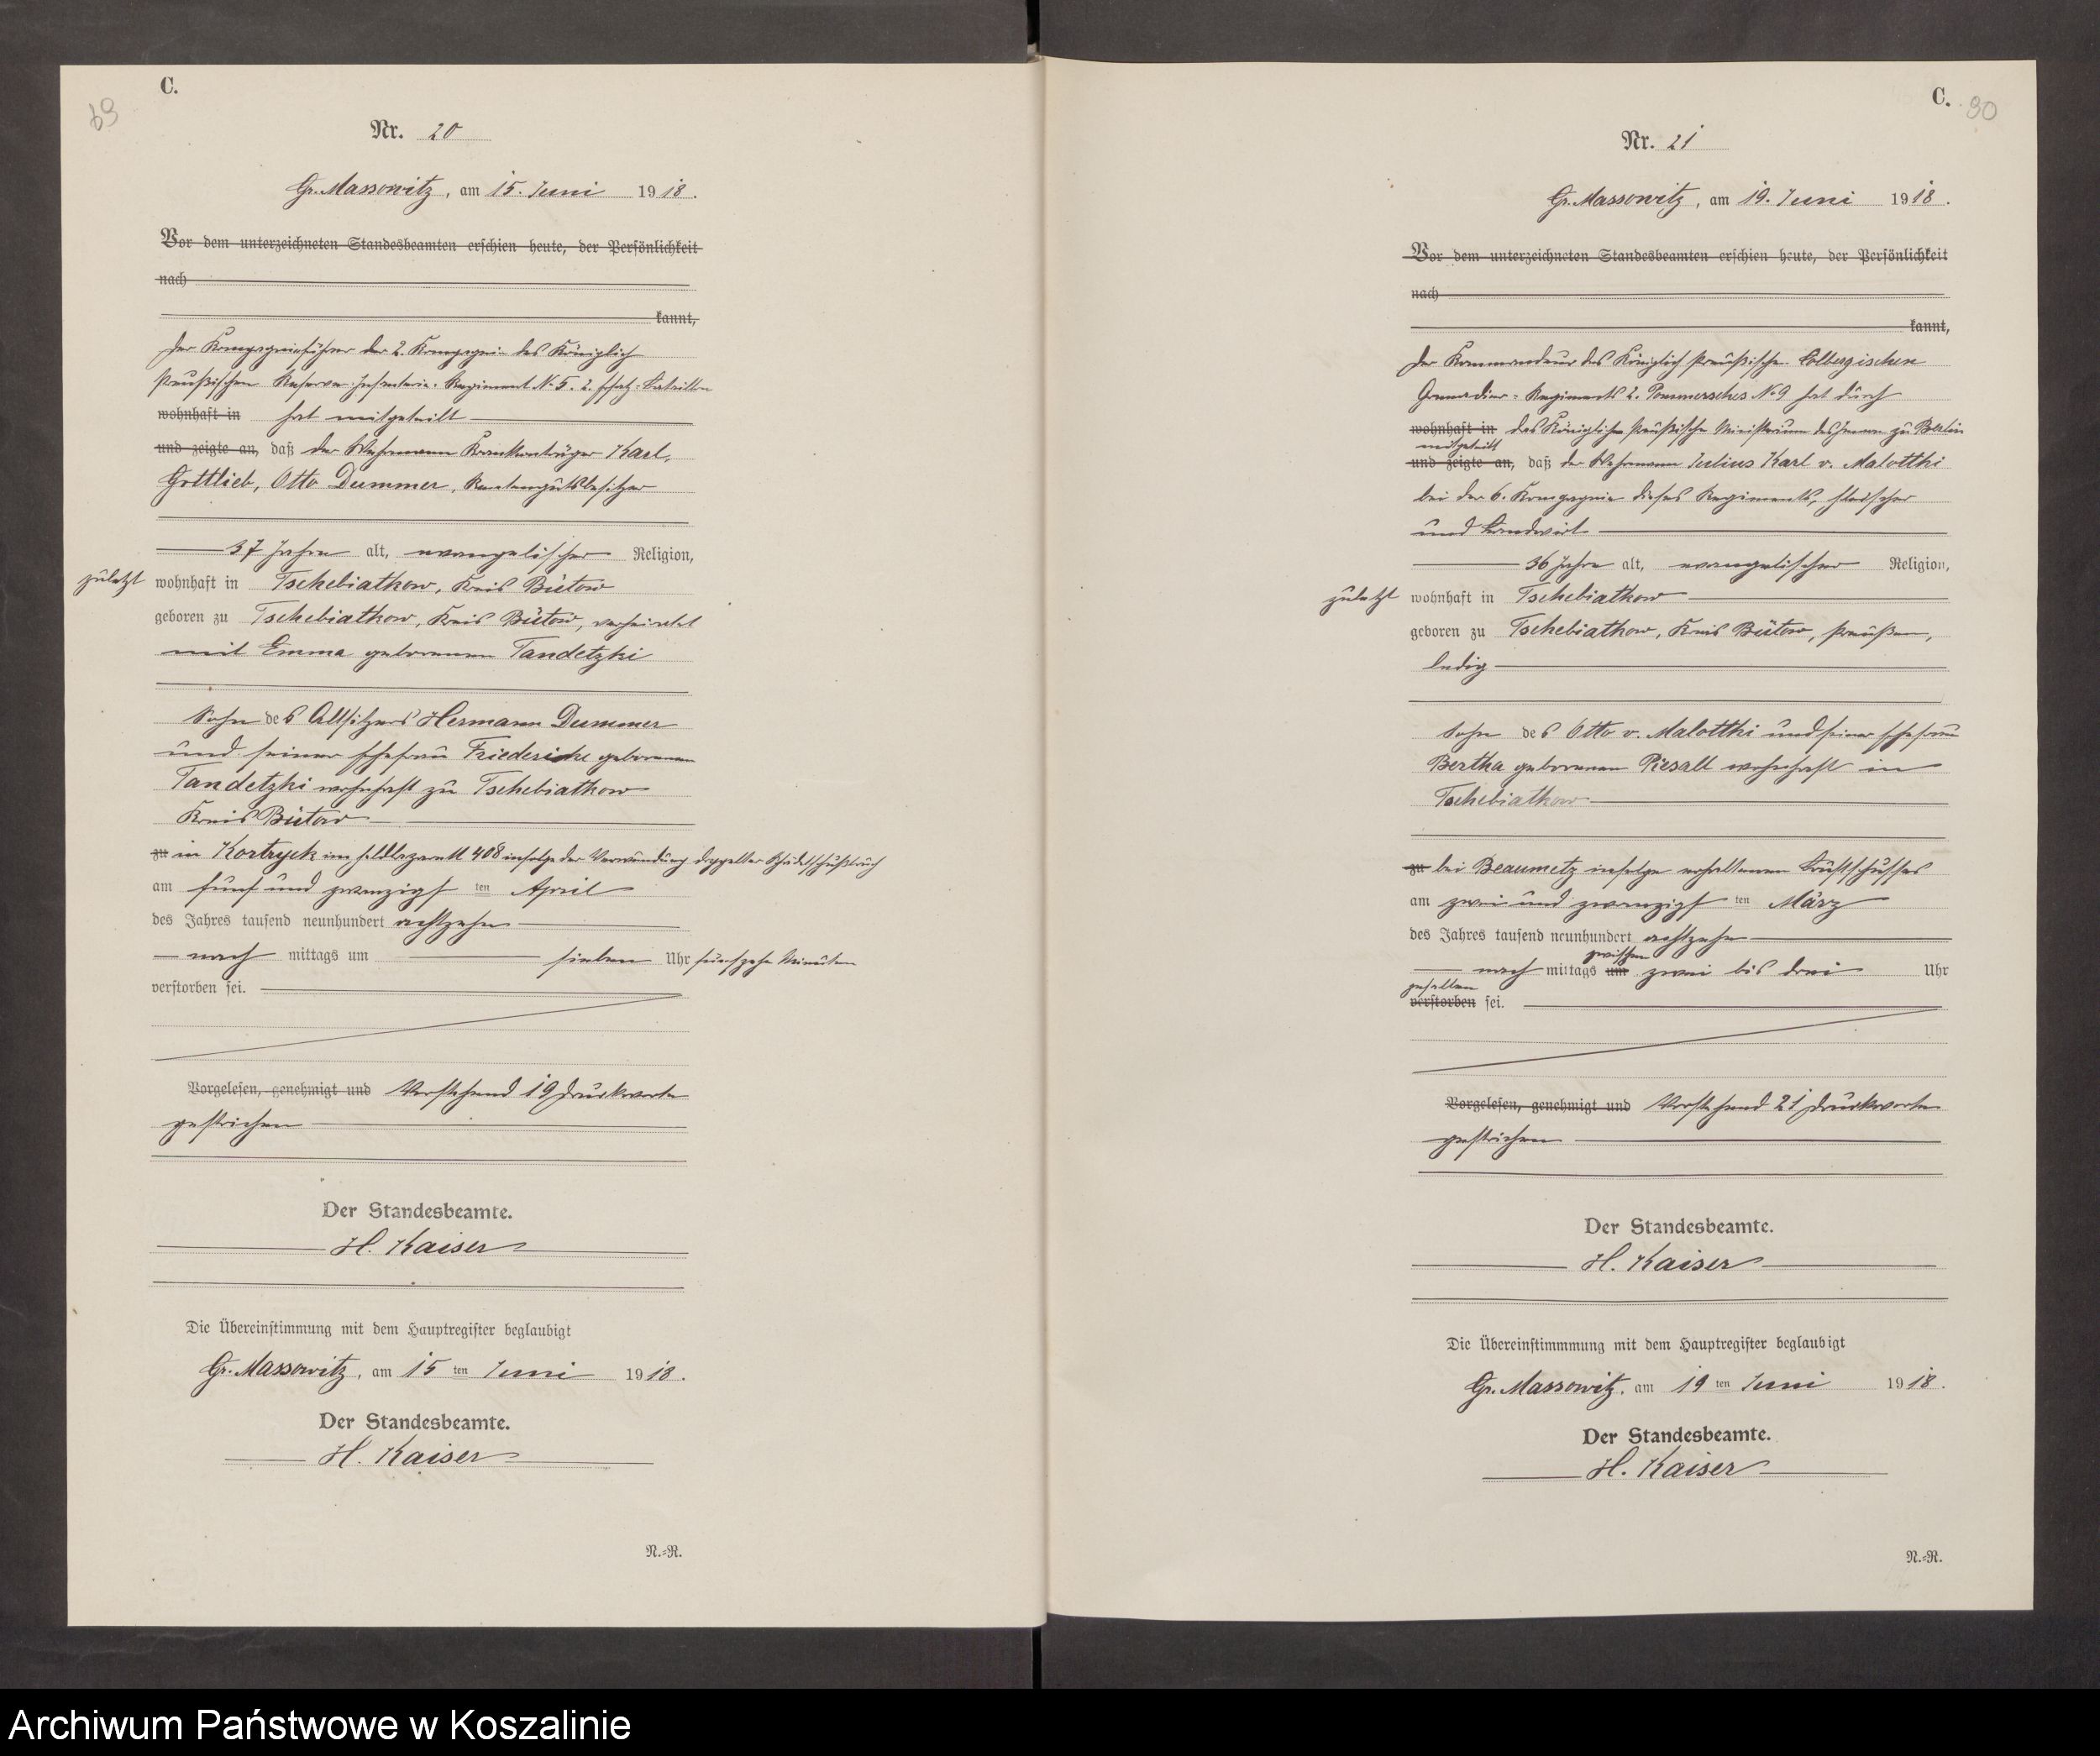 C.
69
Nr. 20
Gr. Massowitz, am 15. Juni 1918.
Vor dem unterzeichneten Standesbeamten erschien heute, der Persönlichkeit
nach
kannt,
Der Kompagnieführer der 2. Kompagnie des Königlich
Preußischen Reserve-Infanterie-Regiment No 5. 2. Ersatz-Bataillon
wohnhaft in hat mitgeteilt
und zeigte an, daß der Wehrmann Krankenträger Karl,
Gottlieb, Otto Dummer, Rentengutsbesitzer
37 Jahre alt, evangelischer Religion,
zuletzt wohnhaft in Tschebiatkow, Kreis Bütow
geboren zu Tschebiatkow, Kreis Bütow, verheiratet
mit Emma geborenen Tandetzki
Sohn des Altsitzers Hermann Dummer
und seiner Ehefrau Friederike geborenen
Tandetzki wohnhaft zu Tschebiatkow
Kreis Bütow
zu in Kortryck im Feldlazarett 408 infolge der Verwundung doppelter Schädelschußbruch
am fünf und zwanzigsten April
des Jahres tausend neunhundert achtzehn
nachmittags um sieben Uhr fünfzehn Minuten
verstorben sei.
Vorgelesen, genehmigt und Vorstehend 19 Druckworte
gestrichen
Der Standesbeamte.
H. Kaiser
Die Übereinstimmung mit dem Hauptregister beglaubigt
Gr. Massowitz, am 15ten Juni 1918.
Der Standesbeamte.
H. Kaiser
N.=R.
C.
90
Nr. 21
Gr. Massowitz, am 19. Juni 1918.
Vor dem unterzeichneten Standesbeamten erschien heute, der Persönlichkeit
nach
kannt,
Der Kommandeur des Königlich Preußische Colbergischen
Grenadier-Regiments 2. Pommersches No 9 hat durch
wohnhaft in das Königliche Preußische Ministerium des Innern zu Berlin
mitgeteilt
und zeigte an, daß der Wehrmann Julius Karl v. Malottki
bei der 6. Kompagnie dieses Regiments, Fleischer
und Landwirt
36 Jahre alt, evangelischer Religion,
zuletzt wohnhaft in Tschebiatkow
geboren zu Tschebiatkow, Kreis Bütow, Preußen,
ledig
Sohn des Otto v. Malottki und seiner Ehefrau
Bertha geborenen Piesall wohnhaft in
Tschebiatkow
zu bei Beaumetz infolge erhaltenen Brustschusses
am zwei und zwanzigsten März
des Jahres tausend neunhundert achtzehn
zwischen
nachmittags um zwei bis drei Uhr
gefallen
verstorben sei.
Vorgelesen, genehmigt und Vorstehend 21 Druckworte
gestrichen
Der Standesbeamte.
H. Kaiser
Die Übereinstimmmung mit dem Hauptregister beglaubigt
Gr. Massowitz, am 19ten Juni 1918.
Der Standesbeamte.
H. Kaiser
N.=R.
Archiwum Państwowe w Koszalinie